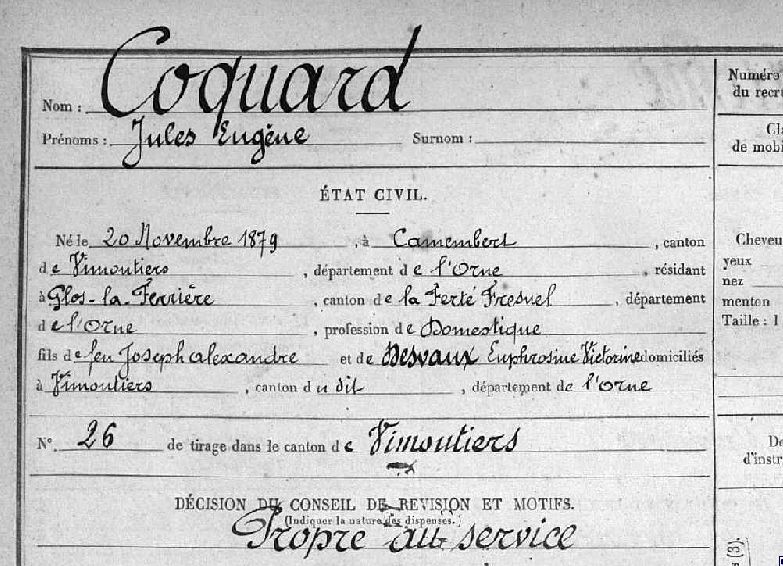 Nom : Coquard
Prénoms : Jules Eugène Surnom :
ÉTAT CIVIL.
Né le 20 Novembre 1879, à Camembert, canton
de Vimoutiers, département de l'Orne, résidant
à Glos-la-Ferrière, canton de la Ferté Fresnel, département
de l'Orne, profession de Domestique
fils de feu Joseph Alexandre et de Desvaux Euphrosine Victorine domiciliés
à Vimoutiers, canton du dit, département de l'Orne
N° 26 de tirage dans le canton de Vimoutiers
DÉCISION DU CONSEIL DE REVISION ET MOTIFS.
(Indiquer la nature des dispenses.)
Propre au service
Numéro
du recru
Cla
de mobi
Cheveu
yeux
nez
menton
Taille : 1
De
d'instr
(3)